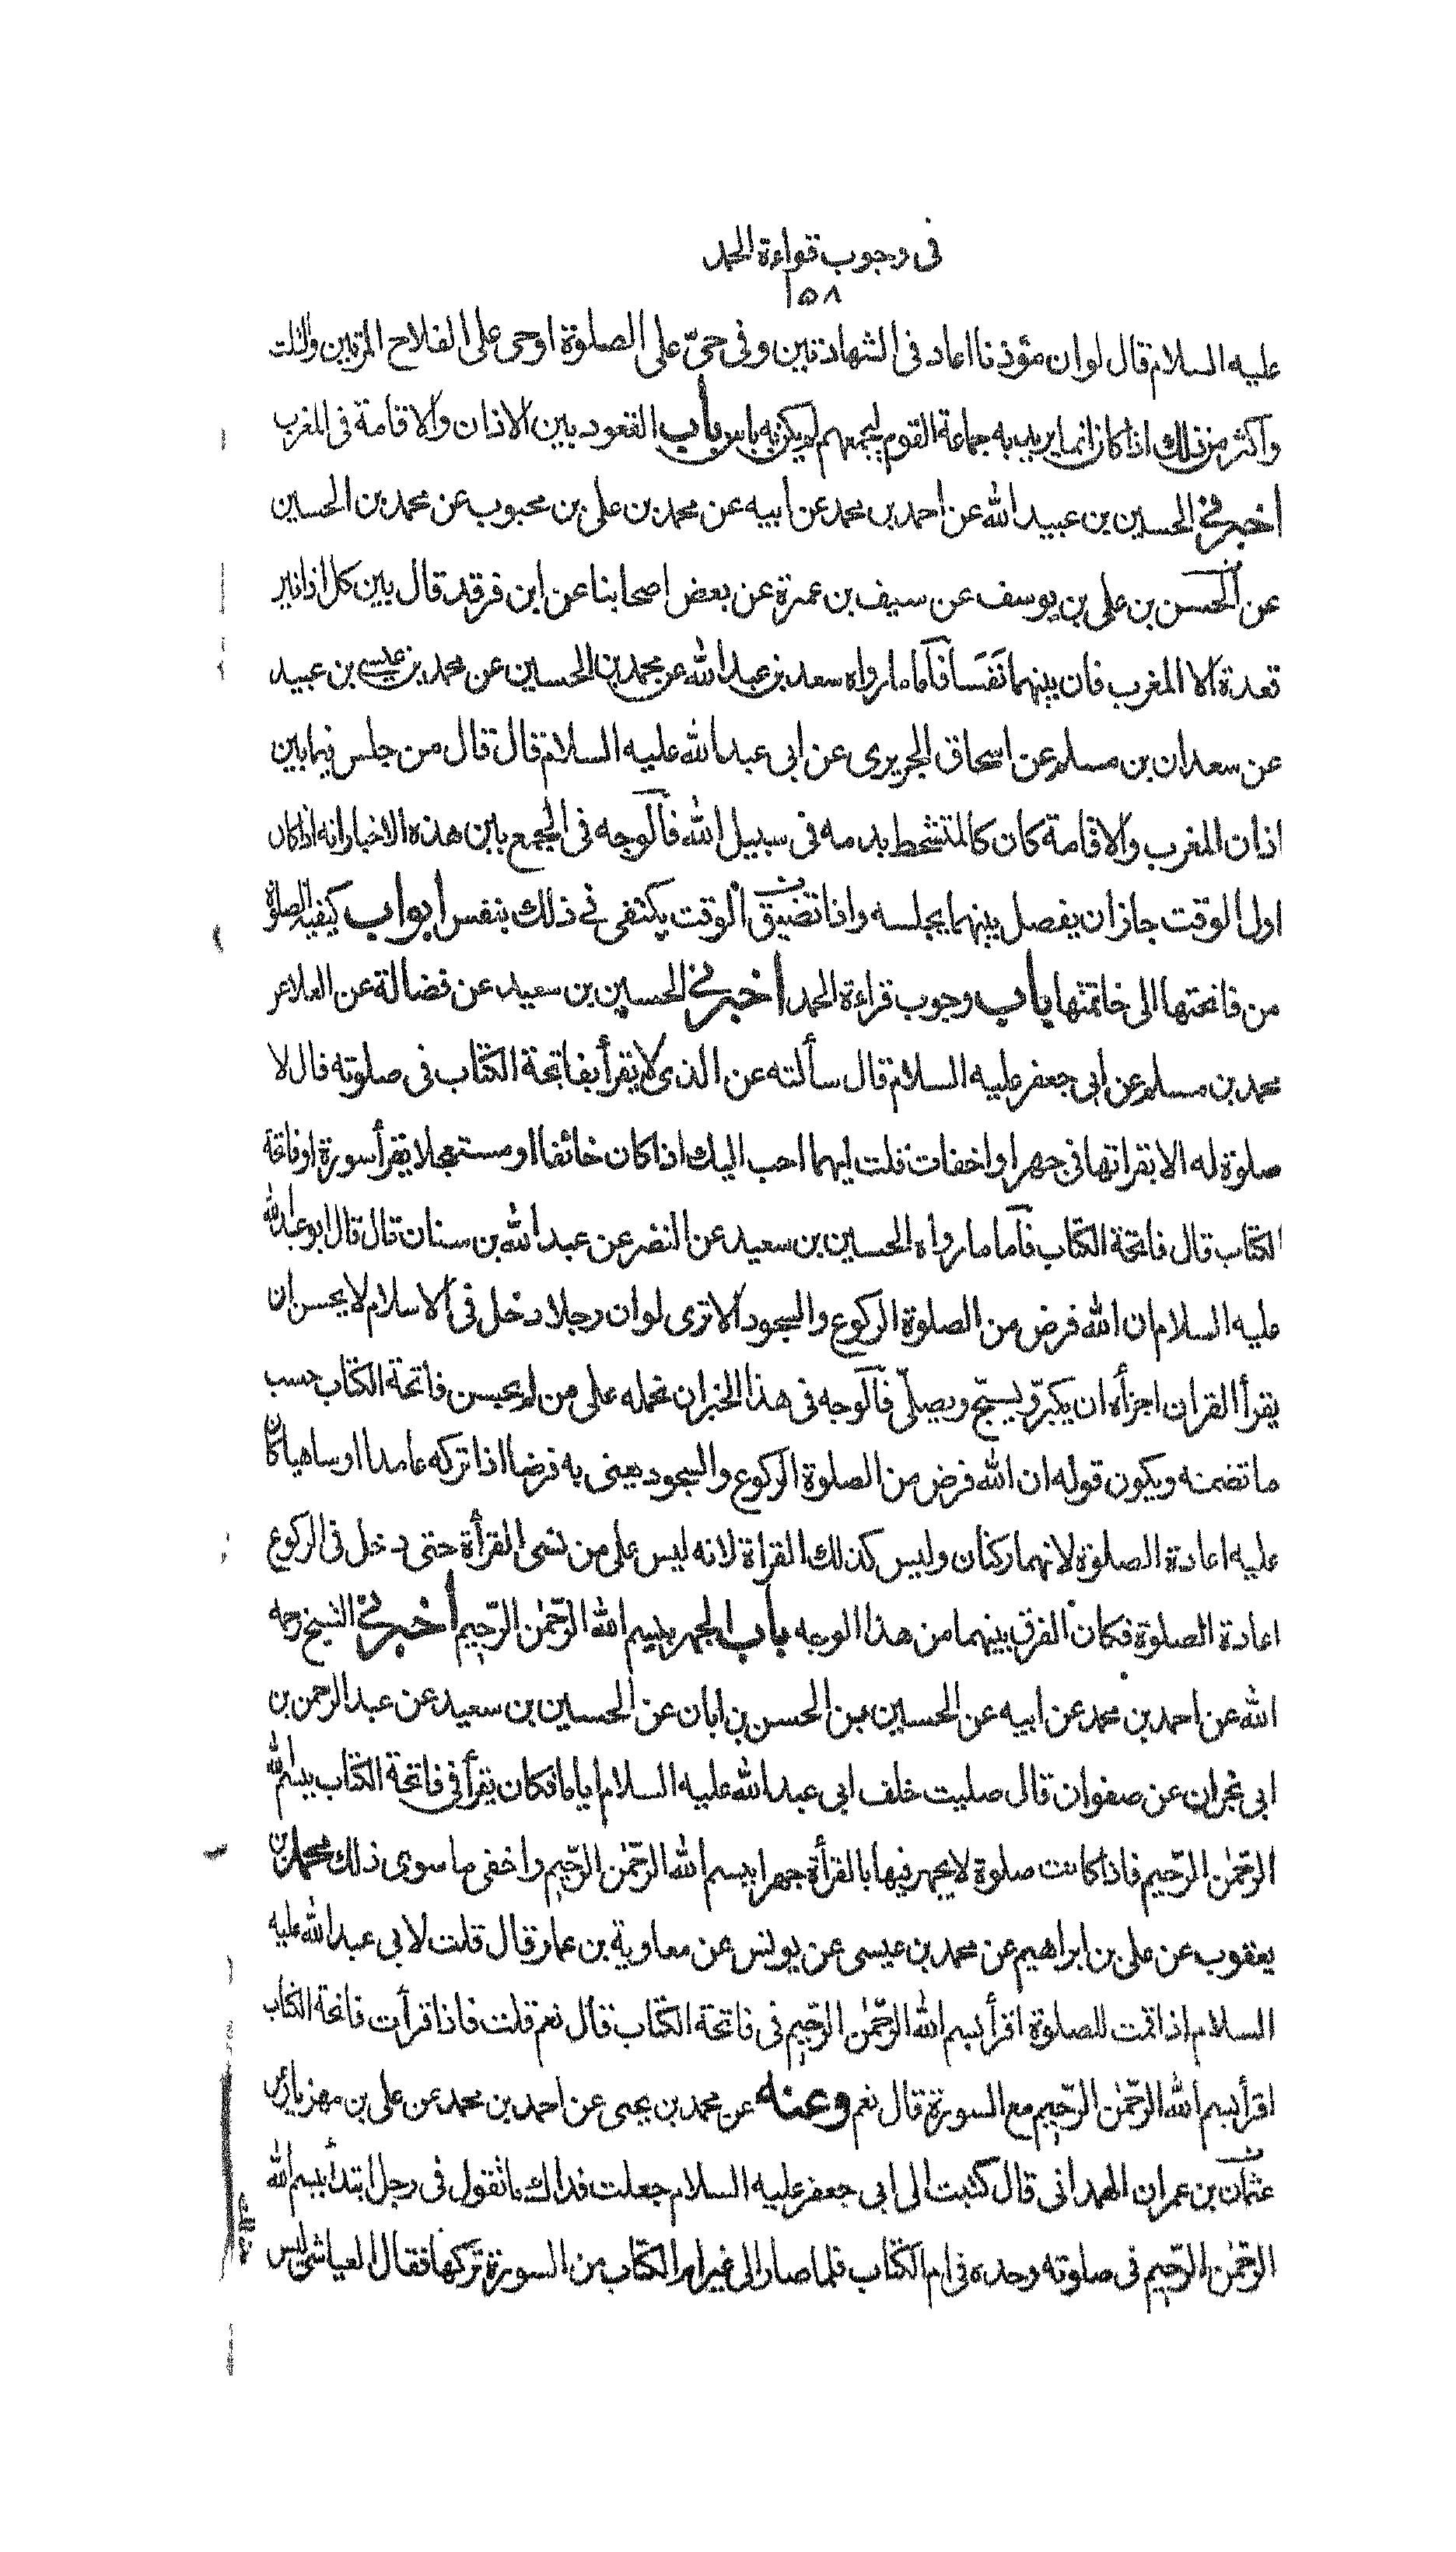 فى وجوب قراءة الحمد
١٥٨
عليه السلام قال لو ان مؤذنا اعاد فى الشهادتين و فى حىّ على الصلوة او حى على الفلاح المرتين والثلث
واكثر من ذلك اذا كان انما يريد به جماعة القوم ليجمعهم لم يكن به باس باب القعود بين الاذان والاقامة فى المغرب
اخبرني الحسين بن عبيد الله عن احمد بن محمد عن ابيه عن محمد بن على بن محبوب عن محمد بن الحسين
عن الحسن بن على بن يوسف عن سيف بن عميرة عن بعض اصحابنا عن ابن فرقد قال بين كل اذانين
قعدة الا المغرب فان بينهما نَفَسَا فاَما ما رواه سعد بن عبد الله عن محمد بن الحسين عن محمد بن عيسى بن عبيد
عن سعدان بن مسلم عن اسحاق الجريرى عن ابى عبد الله عليه السلام قال قال من جلس فيما بين
اذان المغرب والاقامة كان كالمتشحط بدمه فى سبيل الله فآلوجه فى الجمع بين هذه الاخبار انه اذا كان
اول الوقت جاز ان يفصل بينهما بجلسه واذا تضيق الوقت يكتفى في ذلك بنفس ابواب كيفية الصلوة
من فاتحتها الى خاتمتها باب وجوب قراءة الحمد اخبرني الحسين بن سعيد عن فضالة عن العلا عن
محمد بن مسلم عن ابى جعفر عليه السلام قال سألته عن الذى لا يقرأ بفاتحة الكتاب فى صلوته قال لا
صلوة له الا بقراتها فى جهر او اخفات قلت ايهما احب اليك اذا كان خائفا او مستعجلا يقرأ سورة او فاتحة
الكتاب قال فاتحة الكتاب فآما ما رواه الحسين بن سعيد عن النضر عن عبد الله بن سنان قال قال ابو عبد الله
عليه السلام ان الله فرض من الصلوة الركوع والسجود الا ترى لو ان رجلا دخل فى الاسلام لا يحسن ان
يقرأ القران اجزأه ان يكبر و يسبح و يصلّى فآلوجه فى هذا الخبر ان نحمله على من لم يحسن فاتحة الكتاب حسب
ما تضمنه ويكون قوله ان الله فرض من الصلوة الركوع والسجود يعنى به فرضا اذا تركه عامدا او ساهيا كان
عليه اعادة الصلوة لانهما ركنان وليس كذلك القراة لانه ليس على من نسى القرأة حتى دخل فى الركوع
اعادة الصلوة فكان الفرق بينهما من هذا الوجه باب الجهر ببسم الله الرّحمٰن الرّحيم اخبرني الشيخ رحمه
الله عن احمد بن محمد عن ابيه عن الحسين بن الحسن بن ابان عن الحسين بن سعيد عن عبد الرحمن بن
ابى نجران عن صفوان قال صليت خلف ابى عبد الله عليه السلام اياما فكان يقرأ فى فاتحة الكتاب ببسم الله
الرّحمٰن الرّحيم فاذا كانت صلوة لا يجهر فيها بالقرأة جهر ببسم الله الرّحمٰن الرّحيم واخفى ما سوى ذلك محمد بن
يعقوب عن على بن ابراهيم عن محمد بن عيسى عن يونس عن معاوية بن عمار قال قلت لابى عبد الله عليه
السلام اذا قمت للصلوة اقرأ بسم الله الرّحمٰن الرّحيم فى فاتحة الكتاب قال نعم قلت فاذا قرأت فاتحة الكتاب
اقرأ بسم الله الرّحمٰن الرّحيم مع السورة قال نعم وعنه عن محمد بن يحيى عن احمد بن محمد عن على بن مهزيار عن
عثمان بن عمران الهمدانى قال كتبت الى ابى جعفر عليه السلام جعلت فداك ما تقول فى رجل ابتدأ ببسم الله
الرّحمٰن الرّحيم فى صلوته وحده فى ام الكتاب فلما صار الى غير ام الكتاب من السورة تركها فقال العياشى ليس